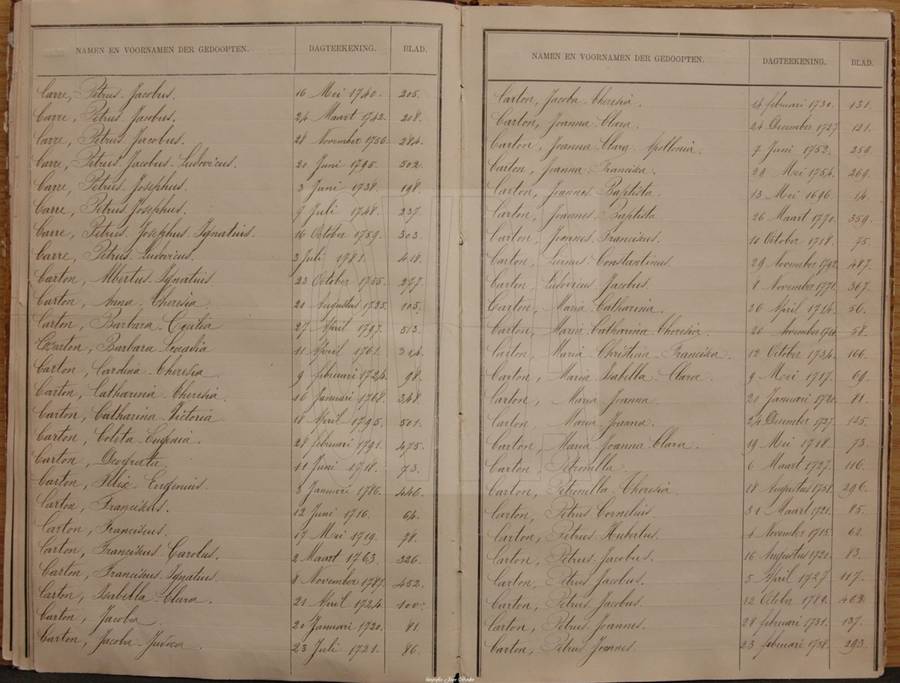 NAMEN EN VOORNAMEN DER GEDOOPTEN. DAGTEEKENING. BLAD.
Carre, Petrus Jacobus. 16 Mei 1740. 205.
Carre, Petrus Jacobus. 24 Maart 1742. 208.
Carre, Petrus Jacobus. 28 November 1750. 284.
Carre, Petrus Jacobus Ludovicus. 20 Juni 1795. 502.
Carre, Petrus Josephus. 3 Juni 1738. 198.
Carre, Petrus Josephus. 9 Juli 1748. 237.
Carre, Petrus Josephus Ignatius. 16 October 1759. 303.
Carre, Petrus Ludovicus. 3 Juli 1781. 418.
Carton, Albertus Ignatius 22 October 1755. 277.
Carton, Anna Theresia 20 Augustus 1725. 105.
Carton, Barbara Cecilia 27 April 1797. 513.
Carton, Barbara Leocadia 11 April 1761. 314.
Carton, Carolina Theresia 9 februari 1724. 98.
Carton, Catharina Theresia 16 Januari 1768. 348.
Carton, Catharina Victoria 18 April 1795. 501.
Carton, Coleta Eugenia. 28 februari 1791. 475.
Carton, 11 Juni 1718. 73.
Carton, Felix Eugenius. 3 Januari 1786. 446.
Carton, Franciscus. 12 Juni 1716. 64.
Carton, Franciscus. 17 Mei 1719. 78.
Carton, Franciscus Carolus. 2 Maart 1763. 326.
Carton, Franciscus Ignatius 8 November 1787. 452.
Carton, Isabella Clara. 21 April 1724. 100.
Carton, Jacoba 20 Januari 1720. 81.
Carton, Jacoba 23 Juli 1721. 86.
NAMEN EN VOORNAMEN DER GEDOOPTEN. DAGTEEKENING. BLAD.
Carton, Jacoba Theresia. 14 februari 1730. 131.
Carton, Joanna Clara. 24 December 1727. 121.
Carton, Joanna Clara Apollonia. 7 Juni 1752. 259.
Carton, Joanna Francisca. Mei 1754. 269.
Carton, Joannes Baptista. 13 Mei 1696. 14.
Carton, Joannes Baptista 26 Maart 1770. 359.
Carton, Joannes Franciscus. 10 October 1718. 75.
Carton, Constantinus. 29 November 1792. 487.
Carton, Ludovicus Jacobus. 8 November 1771. 367.
Carton, Maria Catharina. 26 April 1714. 56.
Carton, Maria Catharina Theresia. 20 November 58.
Carton, Maria Christina Francisca. 12 October 1734. 166.
Carton, Maria Isabella Clara. 9 Mei 1717. 69.
Carton, Maria Joanna 21 Januari 1720. 81.
Carton, Maria Joanna. 24 December 1727. 125.
Carton, Maria Joanna Clara. 19 Mei 1718. 73.
Carton, Petronilla 6 Maart 1727. 116.
Carton, Petronilla Theresia. 18 Augustus 296.
Carton, Petrus Cornelius. 31 Maart 1721. 85.
Carton, Petrus Hubertus. 1 November 1715. 62.
Carton, Petrus Jacobus. 16 Augustus 1720. 83.
Carton, Petrus Jacobus. 5 April 1727. 117.
Carton, Petrus Jacobus. 12 October
Carton, Petrus Joannes. 28 februari 1731. 137.
Carton, Petrus Joannes. 23 februari 1758. 293.